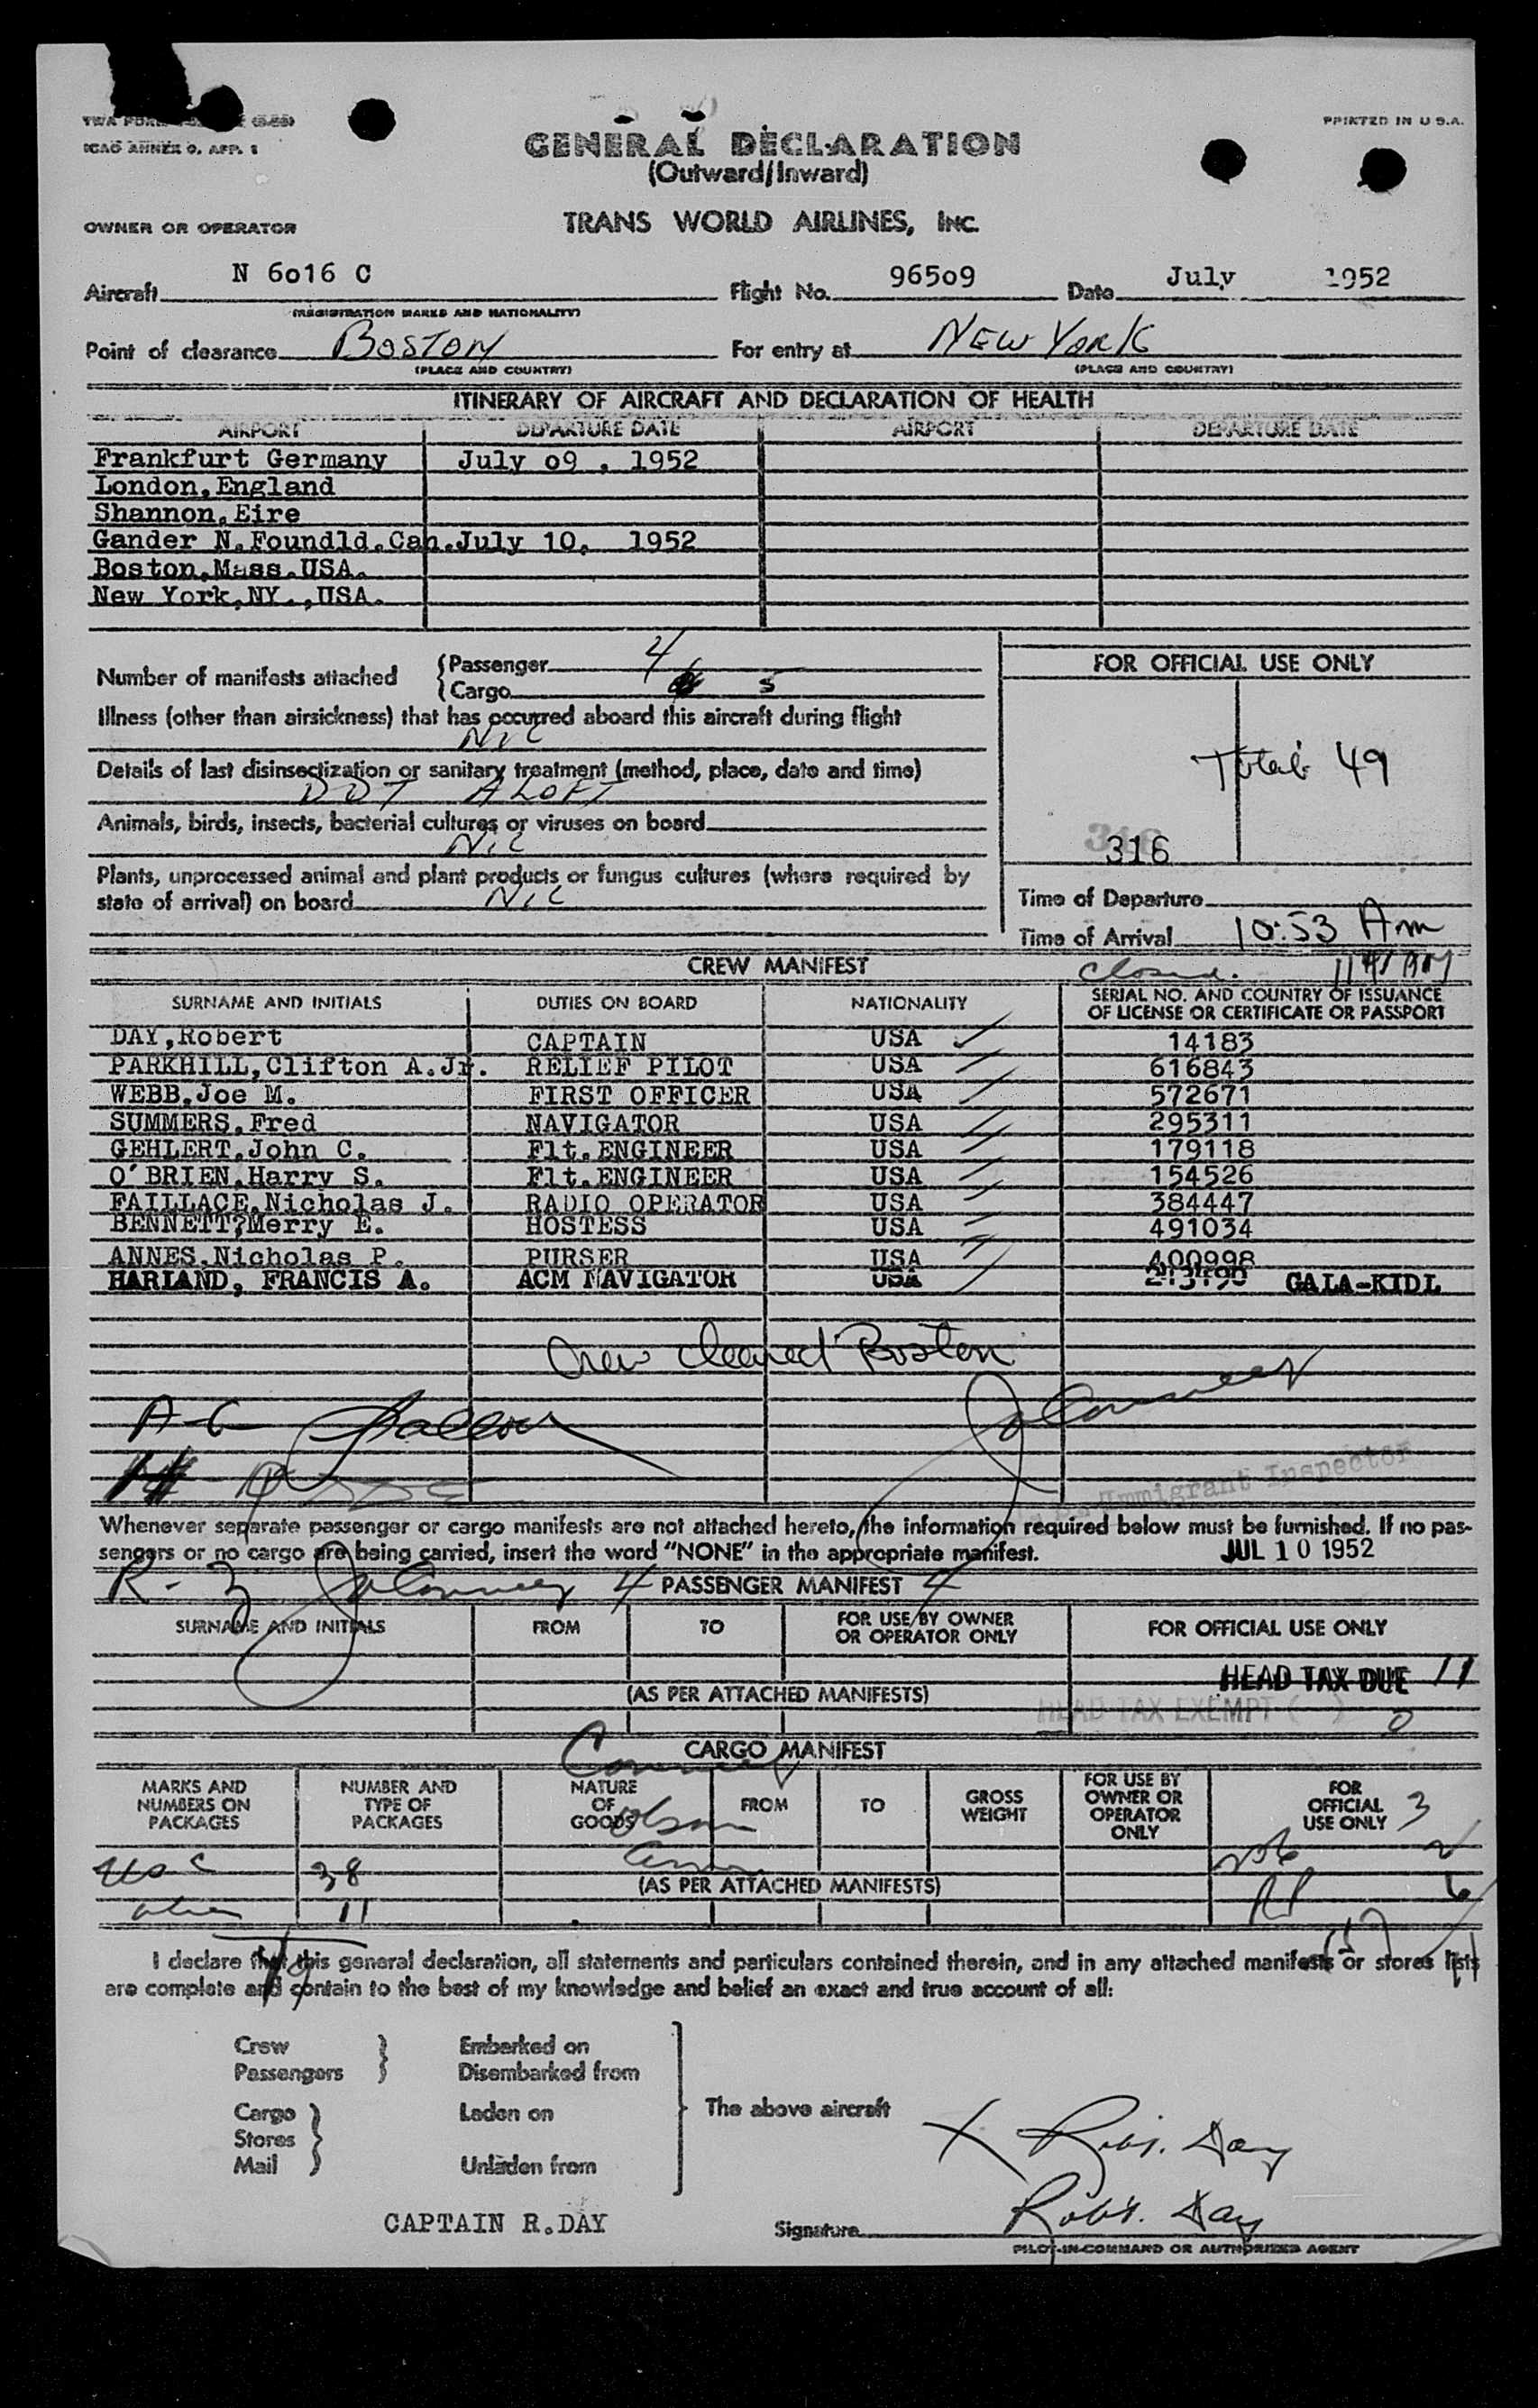 ICAO ANNEX 9, APP. 1
PRINTED IN U.S.A.
GENERAL DECLARATION
(Outward/Inward)
OWNER OR OPERATOR
TRANS WORLD AIRLINES, INC.
Aircraft N 6o16 C Flight No. 965o9 Date July 1952
(REGISTRATION MARKS AND NATIONALITY)
Point of clearance BOSTON For entry at NEW YORK
(PLACE AND COUNTRY) (PLACE AND COUNTRY)
ITINERARY OF AIRCRAFT AND DECLARATION OF HEALTH
AIRPORT DEPARTURE DATE AIRPORT DEPARTURE DATE
Frankfurt Germany July o9 , 1952
London,England
Shannon,Eire
Gander N.Foundld.Can.July 10, 1952
Boston,Mass.USA.
New York,NY.,USA.
Number of manifests attached Passenger 4
Cargo 5
FOR OFFICIAL USE ONLY
Illness (other than airsickness) that has occurred aboard this aircraft during flight
NIL
Total 49
Details of last disinsectization or sanitary treatment (method, place, date and time)
DDT ALOFT
Animals, birds, insects, bacterial cultures or viruses on board
NIL
316
Plants, unprocessed animal and plant products or fungus cultures (where required by
state of arrival) on board NIL
Time of Departure
Time of Arrival 10:53 Am
CREW MANIFEST closed.
SURNAME AND INITIALS DUTIES ON BOARD NATIONALITY SERIAL NO. AND COUNTRY OF ISSUANCE OF LICENSE OR CERTIFICATE OR PASSPORT
DAY,Robert CAPTAIN USA 14183
PARKHILL,Clifton A.Jr. RELIEF PILOT USA 616843
WEBB,Joe M. FIRST OFFICER USA 572671
SUMMERS,Fred NAVIGATOR USA 295311
GEHLERT,John C. Flt.ENGINEER USA 179118
O'BRIEN,Harry S. Flt.ENGINEER USA 154526
FAILLACE,Nicholas J. RADIO OPERATOR USA 384447
BENNETT?Merry E. HOSTESS USA 491034
ANNES,Nicholas P. PURSER USA 400998
HARLAND, FRANCIS A. ACM NAVIGATOR USA GALA-KIDL
Crew cleared Boston
Immigrant Inspector
Whenever separate passenger or cargo manifests are not attached hereto, the information required below must be furnished. If no pas-
sengers or no cargo are being carried, insert the word "NONE" in the appropriate manifest.
JUL 10 1952
PASSENGER MANIFEST
SURNAME AND INITIALS FROM TO FOR USE BY OWNER OR OPERATOR ONLY FOR OFFICIAL USE ONLY
HEAD TAX DUE 11
(AS PER ATTACHED MANIFESTS)
HEAD TAX EXEMPT ( ) 0
CARGO MANIFEST
MARKS AND NUMBERS ON PACKAGES NUMBER AND TYPE OF PACKAGES NATURE OF GOODS FROM TO GROSS WEIGHT FOR USE BY OWNER OR OPERATOR ONLY FOR OFFICIAL USE ONLY 3
USC 38
(AS PER ATTACHED MANIFESTS)
RP 6
11
I declare that this general declaration, all statements and particulars contained therein, and in any attached manifests or stores lists
are complete and contain to the best of my knowledge and belief an exact and true account of all:
Crew Embarked on
Passengers Disembarked from
Cargo Laden on The above aircraft
Stores
Mail Unladen from
X Robt. Day
CAPTAIN R.DAY Signature Robt. Day
PILOT-IN-COMMAND OR AUTHORIZED AGENT